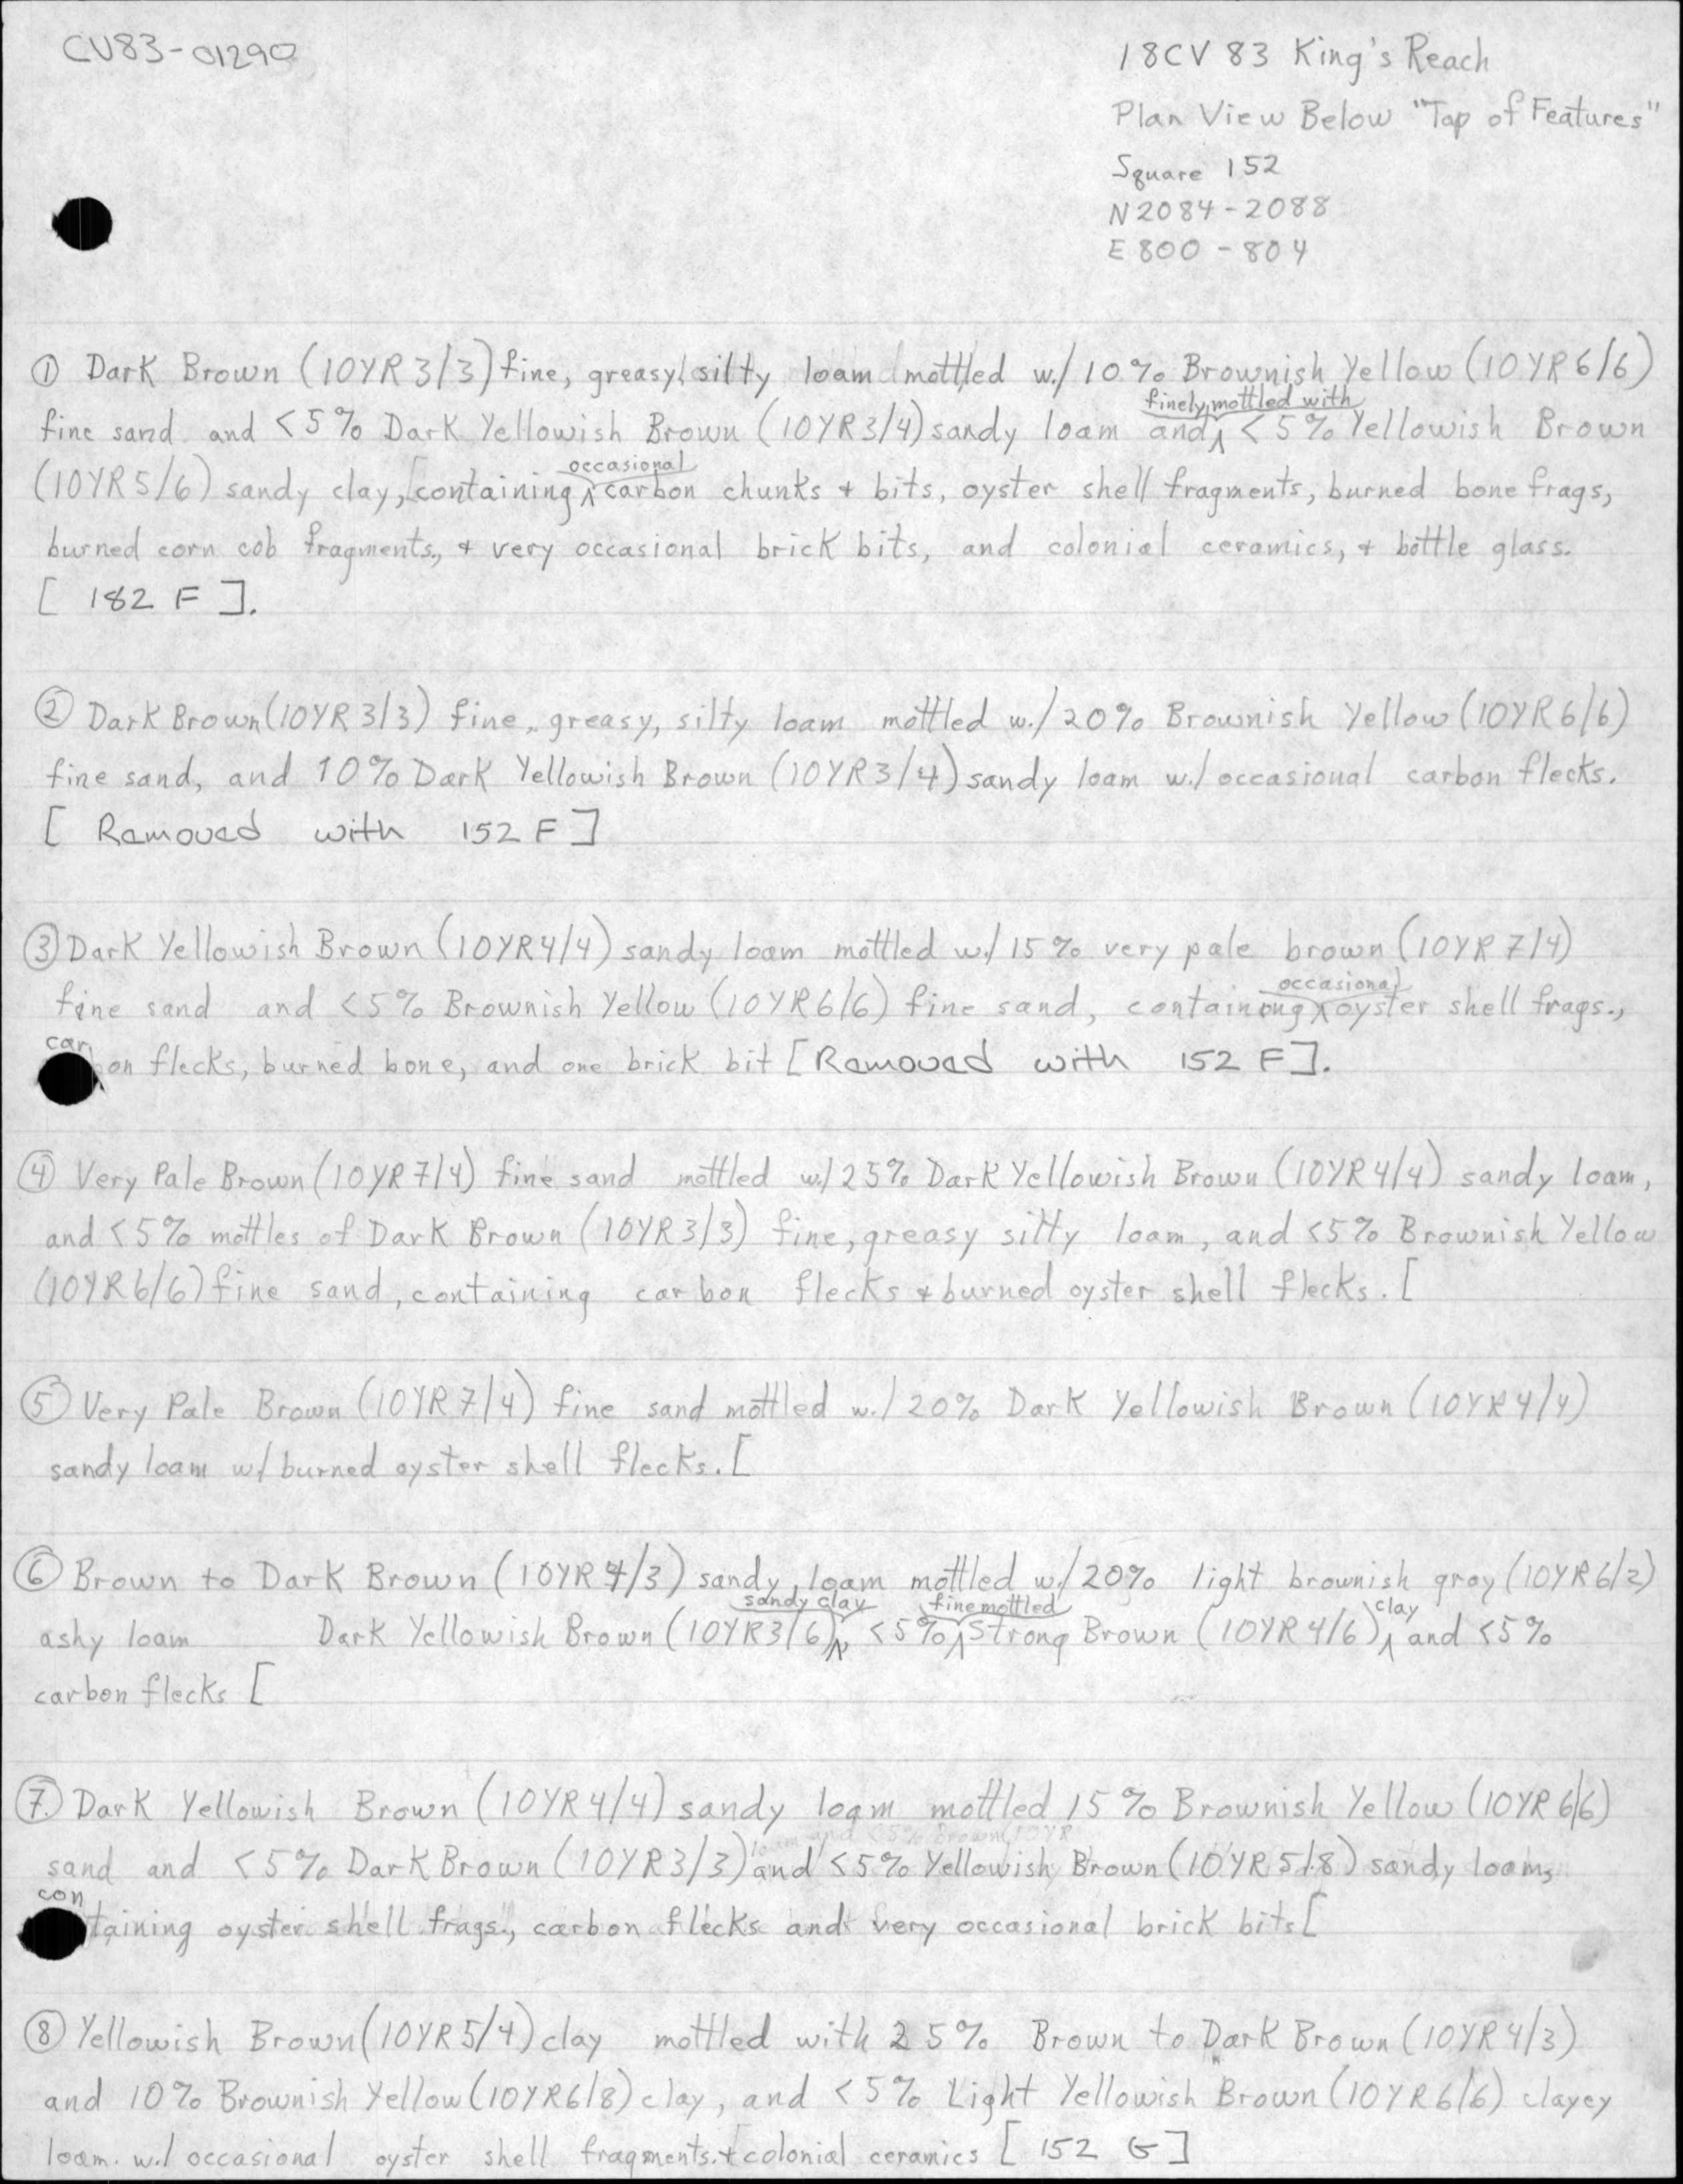 CV83-01290
18CV 83 King's Reach
Plan View Below "Top of Features"
Square 152
N2084-2088
E800-804
① Dark Brown (10YR 3/3) fine, greasy, silty loam mottled w./ 10% Brownish Yellow (10YR 6/6)
fine sand and <5% Dark Yellowish Brown (10YR3/4) sandy loam and finely mottled with <5% Yellowish Brown
(10YR5/6) sandy clay, [containing occasional carbon chunks + bits, oyster shell fragments, burned bone frags,
burned corn cob fragments, + very occasional brick bits, and colonial ceramics, + bottle glass.
[ 182 F ].
② Dark Brown (10YR 3/3) fine, greasy, silty loam mottled w./ 20% Brownish Yellow (10YR6/6)
fine sand, and 10% Dark Yellowish Brown (10YR3/4) sandy loam w./ occasional carbon flecks.
[ Removed with 152 F ]
③ Dark Yellowish Brown (10YR4/4) sandy loam mottled w./ 15% very pale brown (10YR 7/4)
fine sand and <5% Brownish Yellow (10YR6/6) fine sand, containing occasional oyster shell frags.,
carbon flecks, burned bone, and one brick bit [Removed with 152 F].
④ Very Pale Brown (10YR 7/4) fine sand mottled w./ 25% Dark Yellowish Brown (10YR4/4) sandy loam,
and <5% mottles of Dark Brown (10YR3/3) fine, greasy silty loam, and <5% Brownish Yellow
(10YR6/6) fine sand, containing carbon flecks + burned oyster shell flecks. [
⑤ Very Pale Brown (10YR 7/4) fine sand mottled w./ 20% Dark Yellowish Brown (10YR4/4)
sandy loam w/ burned oyster shell flecks. [
⑥ Brown to Dark Brown (10YR 4/3) sandy, loam mottled w./ 20% light brownish gray (10YR6/2)
ashy loam Dark Yellowish Brown (10YR3/6) sandy clay, <5% fine mottled Strong Brown (10YR4/6) clay and <5%
carbon flecks [
⑦. Dark Yellowish Brown (10YR4/4) sandy loam mottled 15% Brownish Yellow (10YR6/6)
sand and <5% Dark Brown (10YR3/3) and <5% Yellowish Brown (10YR5/8) sandy loam,
containing oyster shell frags., carbon flecks and very occasional brick bits [
⑧ Yellowish Brown (10YR5/4) clay mottled with 25% Brown to Dark Brown (10YR4/3)
and 10% Brownish Yellow (10YR6/8) clay, and <5% Light Yellowish Brown (10YR6/6) clayey
loam. w./ occasional oyster shell fragments. + colonial ceramics [ 152 G ]